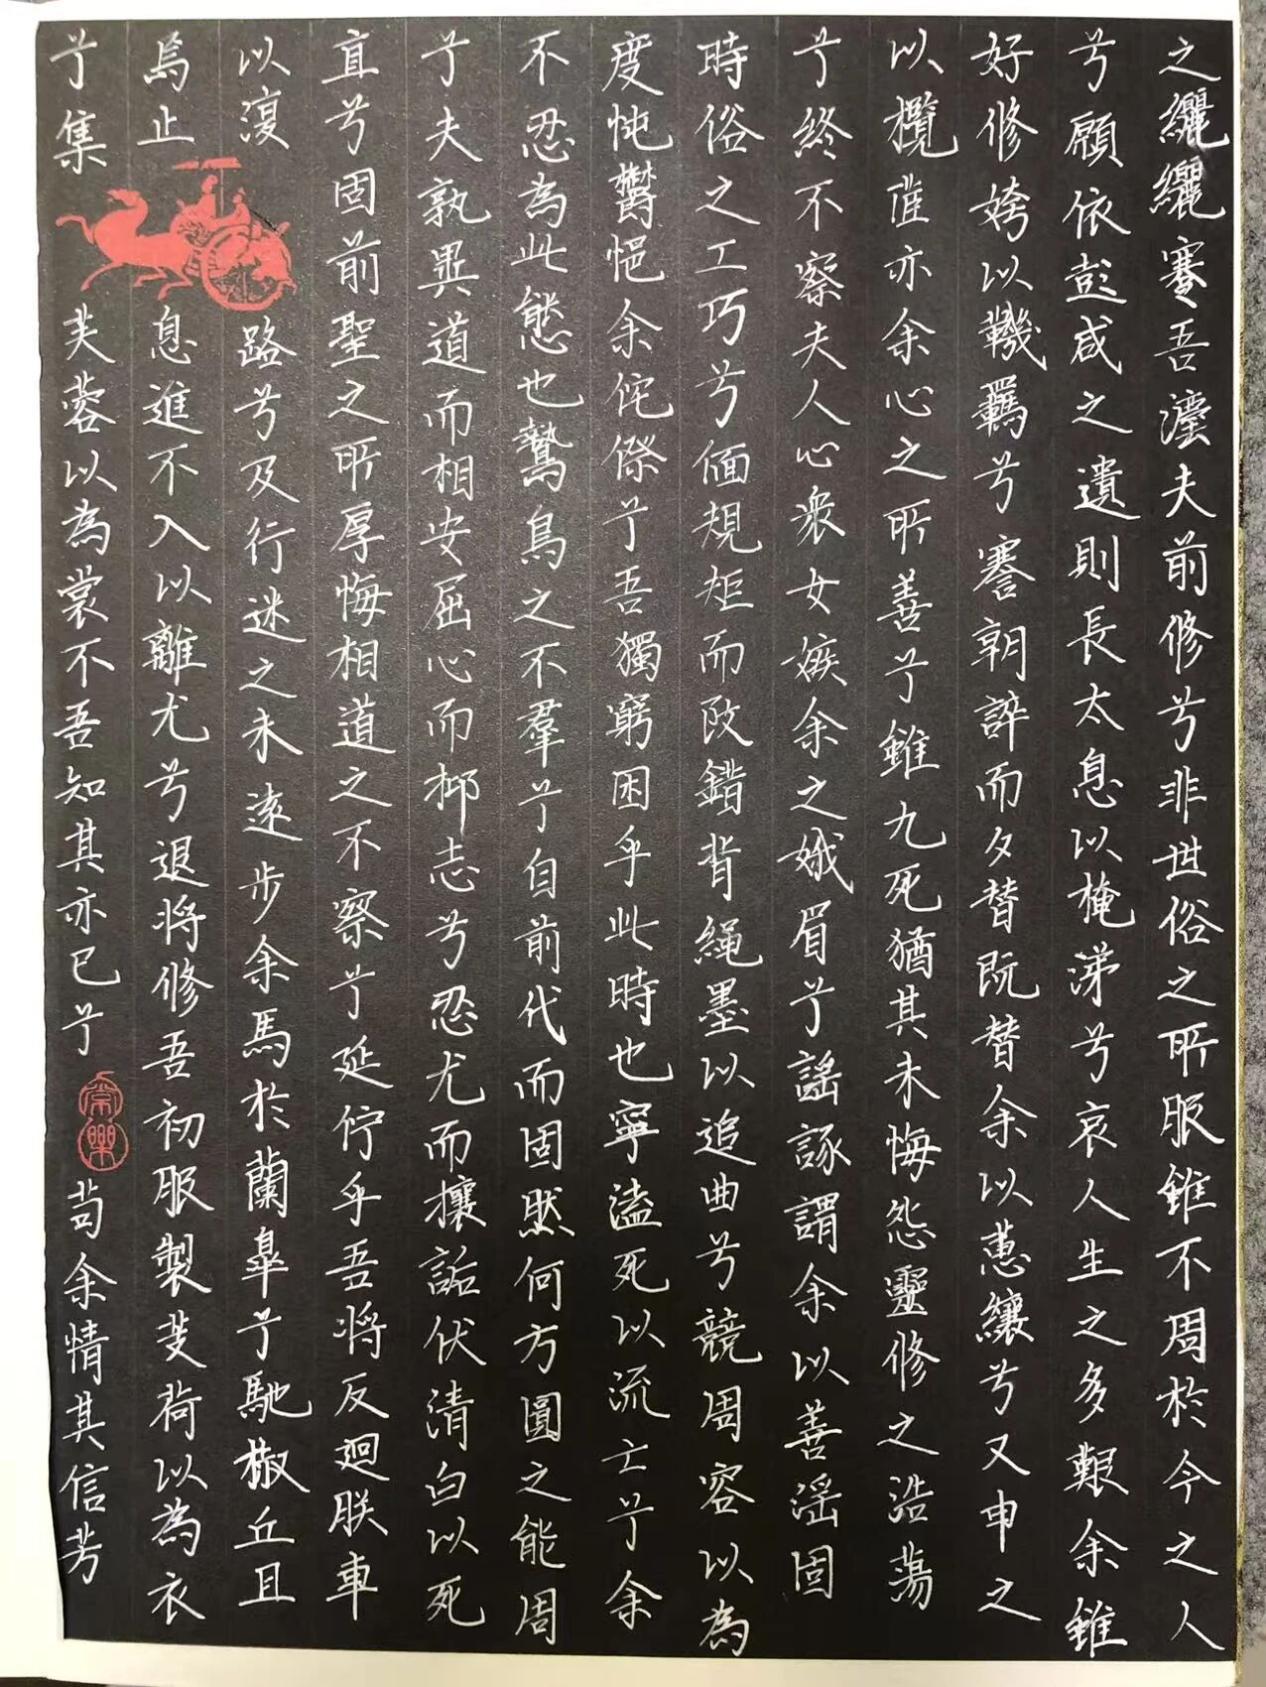 之纚纚謇吾灋夫前修兮非世俗之所服雖不周於今之人
兮願依彭咸之遺則長太息以掩涕兮哀人生之多艱余雖
好修姱以鞿羈兮謇朝誶而夕替既替余以蕙纕兮又申之
以欖茝亦余心之所善兮雖九死猶其未悔怨靈修之浩蕩
兮終不察夫人心衆女嫉余之娥眉兮謠諑謂余以善淫固
時俗之工巧兮偭規矩而改錯背繩墨以追曲兮競周容以為
度忳鬱悒余侘傺兮吾獨窮困乎此時也寧溘死以流亡兮余
不忍為此態也鷙鳥之不羣兮自前代而固然何方圓之能周
兮夫孰異道而相安屈心而抑志兮忍尤而攘詬伏清白以死
直兮固前聖之所厚悔相道之不察兮延佇乎吾將反迴朕車
以復路兮及行迷之未遠步余馬於蘭臯兮馳椒丘且
焉止息進不入以離尤兮退將修吾初服製芰荷以為衣
兮集芙蓉以為裳不吾知其亦已兮苟余情其信芳
常樂